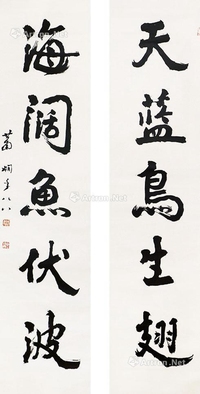 天藍鳥生翅
海闊魚伏波
蕭嫻年八八